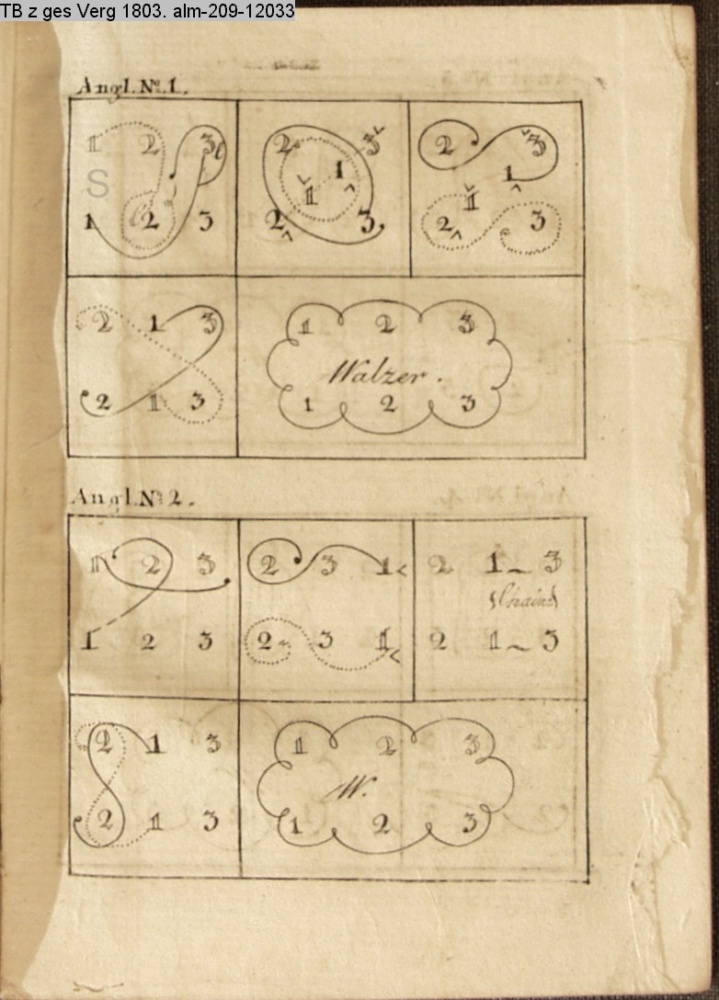 TB z ges Verg 1803. alm-209-12033
Angl. No. 1.
1 2 3
S
1 2 3
2 3
1
1
2 3
2 3
1
1
2 3
2 1 3
2 1 3
1 2 3
Walzer.
1 2 3
Angl. No 2.
1 2 3
1 2 3
2 3 1
2 3 1
2 1 3
Chaine
2 1 3
2 1 3
2 1 3
1 2 3
W.
1 2 3